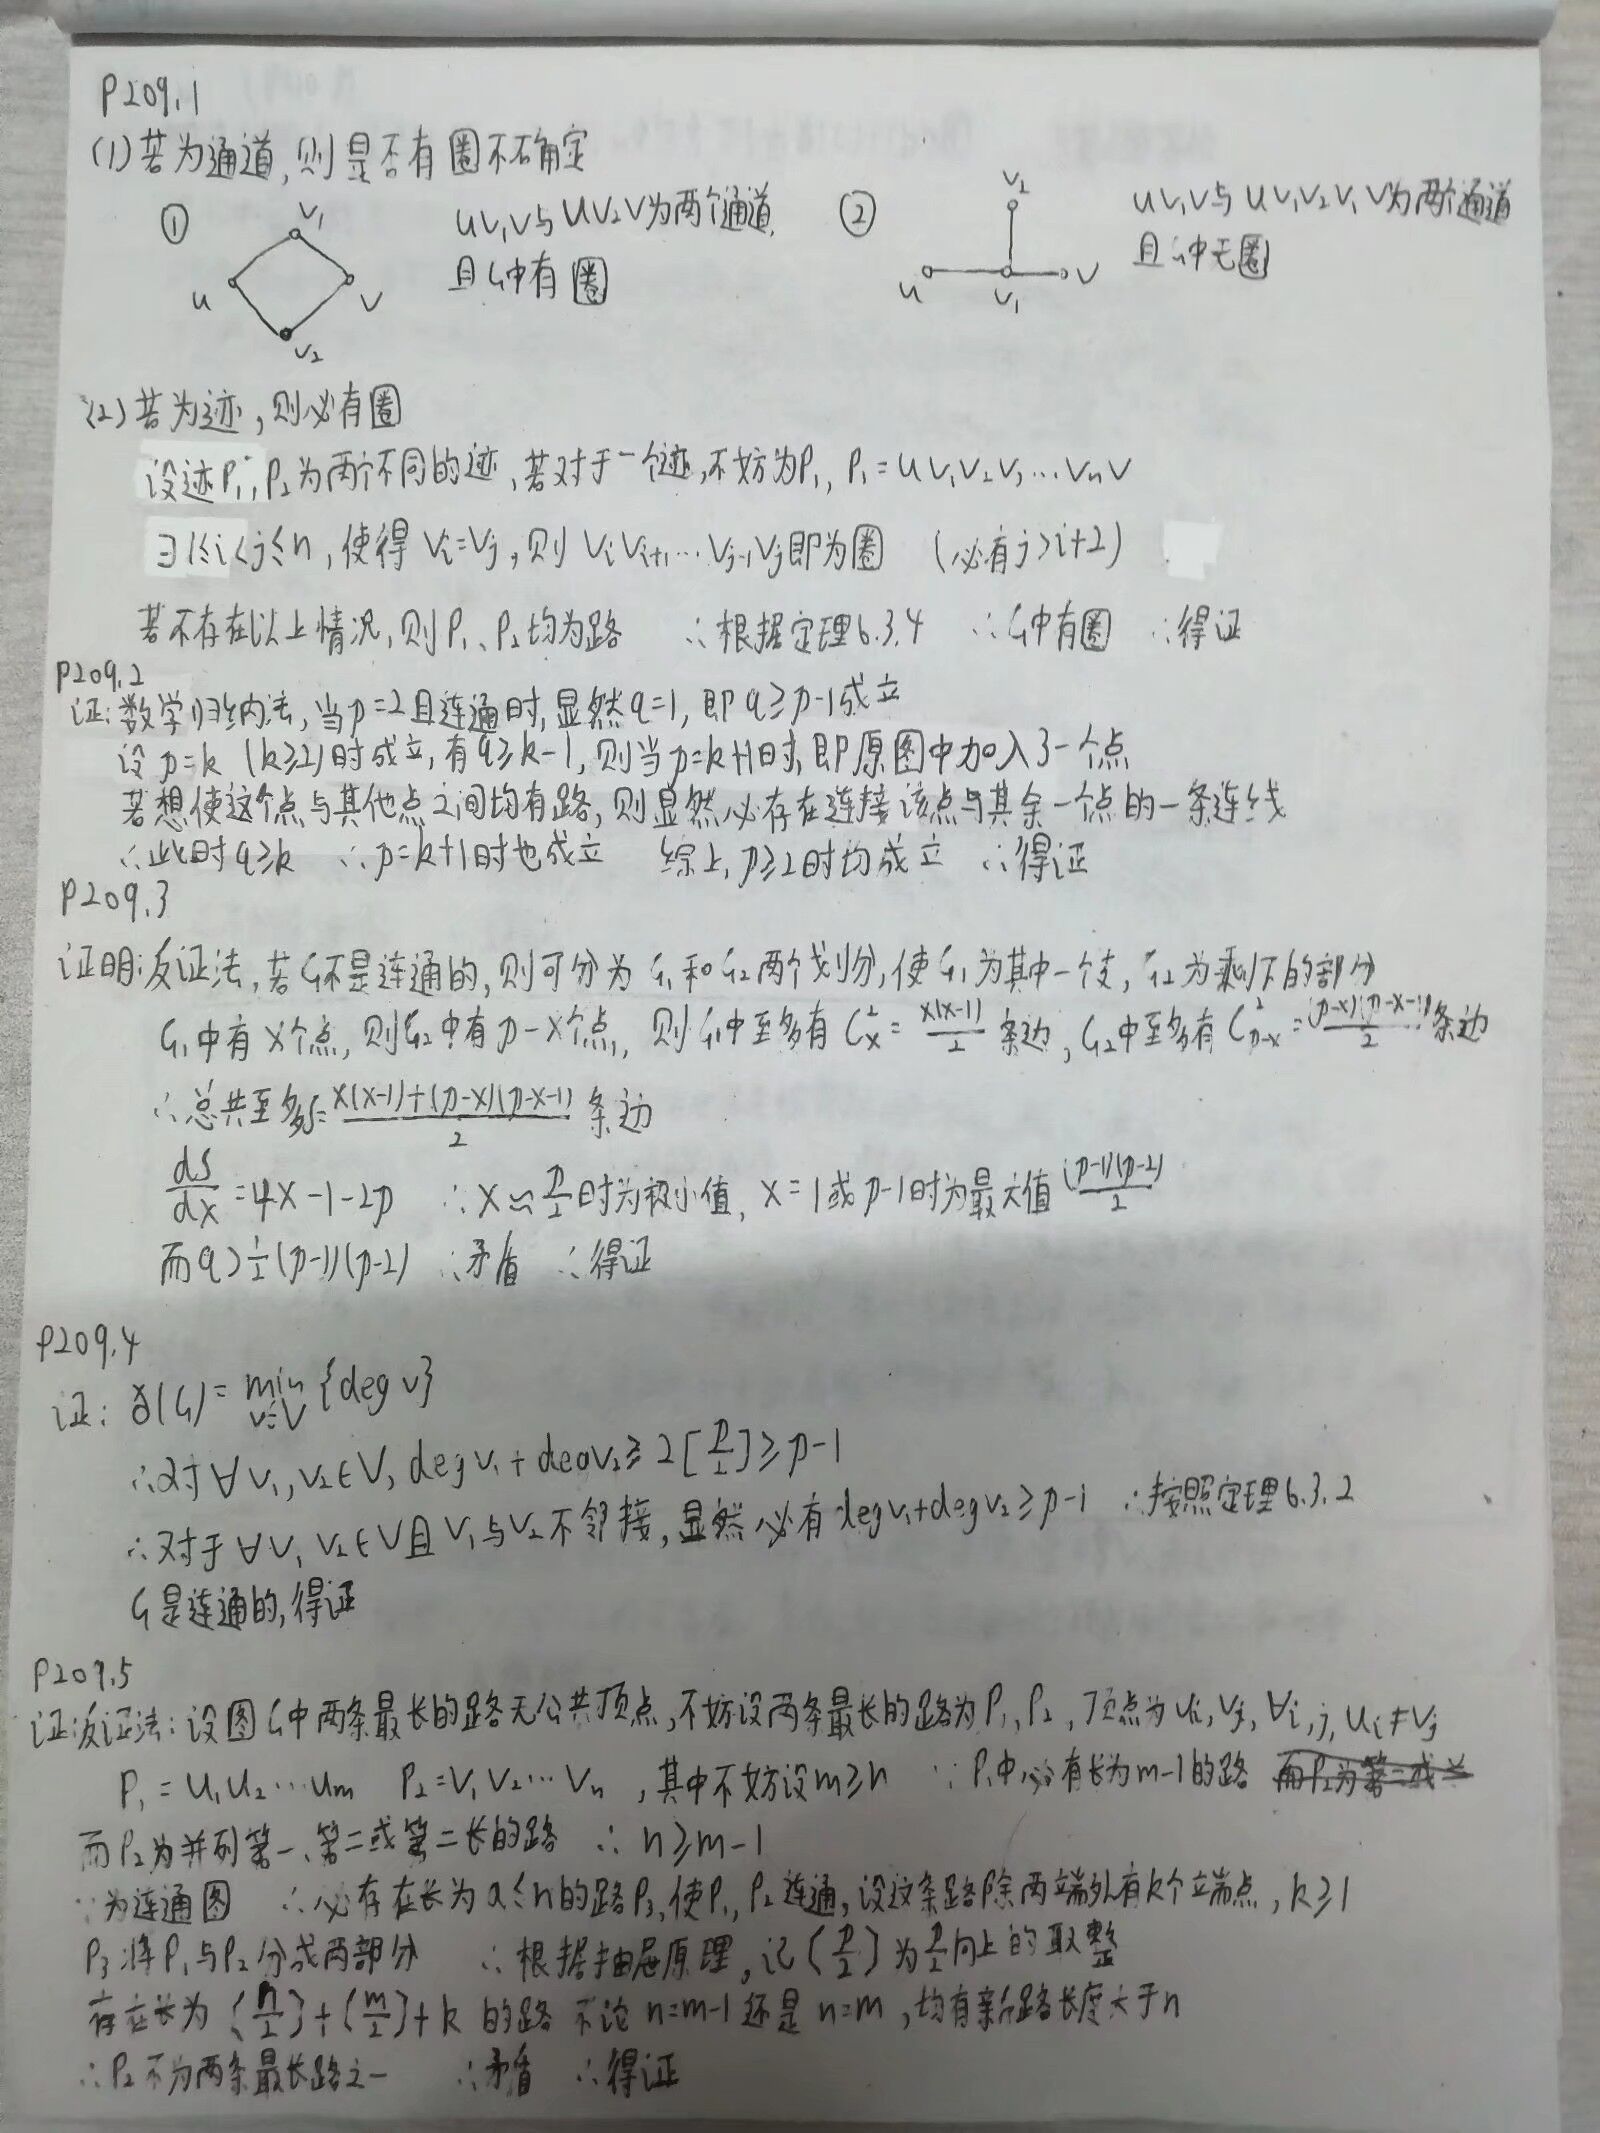 P209.1
(1)若为通道,则是否有圈不确定
① v₁ u v v₂ uv₁v与uv₂v为两个通道,
且G中有圈
② v₂ u v₁ v uv₁v与uv₁v₂v₁v为两个通道
且G中无圈
(2)若为迹,则必有圈
设迹P₁,P₂为两个不同的迹,若对于一个迹,不妨为P₁, P₁=uv₁v₂v₃…vₙv
∃1≤i<j≤n,使得vᵢ=vⱼ,则vᵢvᵢ₊₁…vⱼ₋₁vⱼ即为圈 (必有j>i+2)
若不存在以上情况,则P₁、P₂均为路 ∴根据定理6.3.4 ∴G中有圈 ∴得证
P209.2
证:数学归纳法,当p=2且连通时,显然q=1,即q≥p-1成立
设p=k (k≥2)时成立,有q≥k-1,则当p=k+1时,即原图中加入了一个点
若想使这个点与其他点之间均有路,则显然必存在连接该点与其余一个点的一条连线
∴此时q≥k ∴p=k+1时也成立 综上,p≥2时均成立 ∴得证
P209.3
证明:反证法,若G不是连通的,则可分为G₁和G₂两个划分,使G₁为其中一个支,G₂为剩下的部分
G₁中有x个点,则G₂中有p-x个点,则G₁中至多有C²ₓ=x(x-1)/2条边,G₂中至多有C²ₚ₋ₓ=(p-x)(p-x-1)/2条边
∴总共至多S=x(x-1)+(p-x)(p-x-1)/2条边
dS/dx=4x-1-2p ∴x≈p/2时为极小值,x=1或p-1时为最大值(p-1)(p-2)/2
而q>½(p-1)(p-2) ∴矛盾 ∴得证
P209.4
证:δ(G)=min{deg v} v∈V
∴对∀v₁,v₂∈V, deg v₁+deg v₂≥2[p/2]≥p-1
∴对于∀v₁,v₂∈V且v₁与v₂不邻接,显然必有deg v₁+deg v₂≥p-1 ∴按照定理6.3.2
G是连通的,得证
P209.5
证:反证法:设图G中两条最长的路无公共顶点,不妨设两条最长的路为P₁,P₂,顶点为uᵢ,vⱼ,∀i,j,uᵢ≠vⱼ
P₁=u₁u₂…uₘ P₂=v₁v₂…vₙ,其中不妨设m≥n ∵P₁中必有长为m-1的路
而P₂为并列第一、第二或第二长的路 ∴n≥m-1
∵为连通图 ∴必存在长为a≤n的路P₃,使P₁,P₂连通,设这条路除两端外有k个端点,k≥1
P₃将P₁与P₂分成两部分 ∴根据抽屉原理,记{p/2}为p/2向上的取整
存在长为{n/2}+{m/2}+k的路 不论n=m-1还是n=m,均有新路长度大于n
∴P₂不为两条最长路之一 ∴矛盾 ∴得证